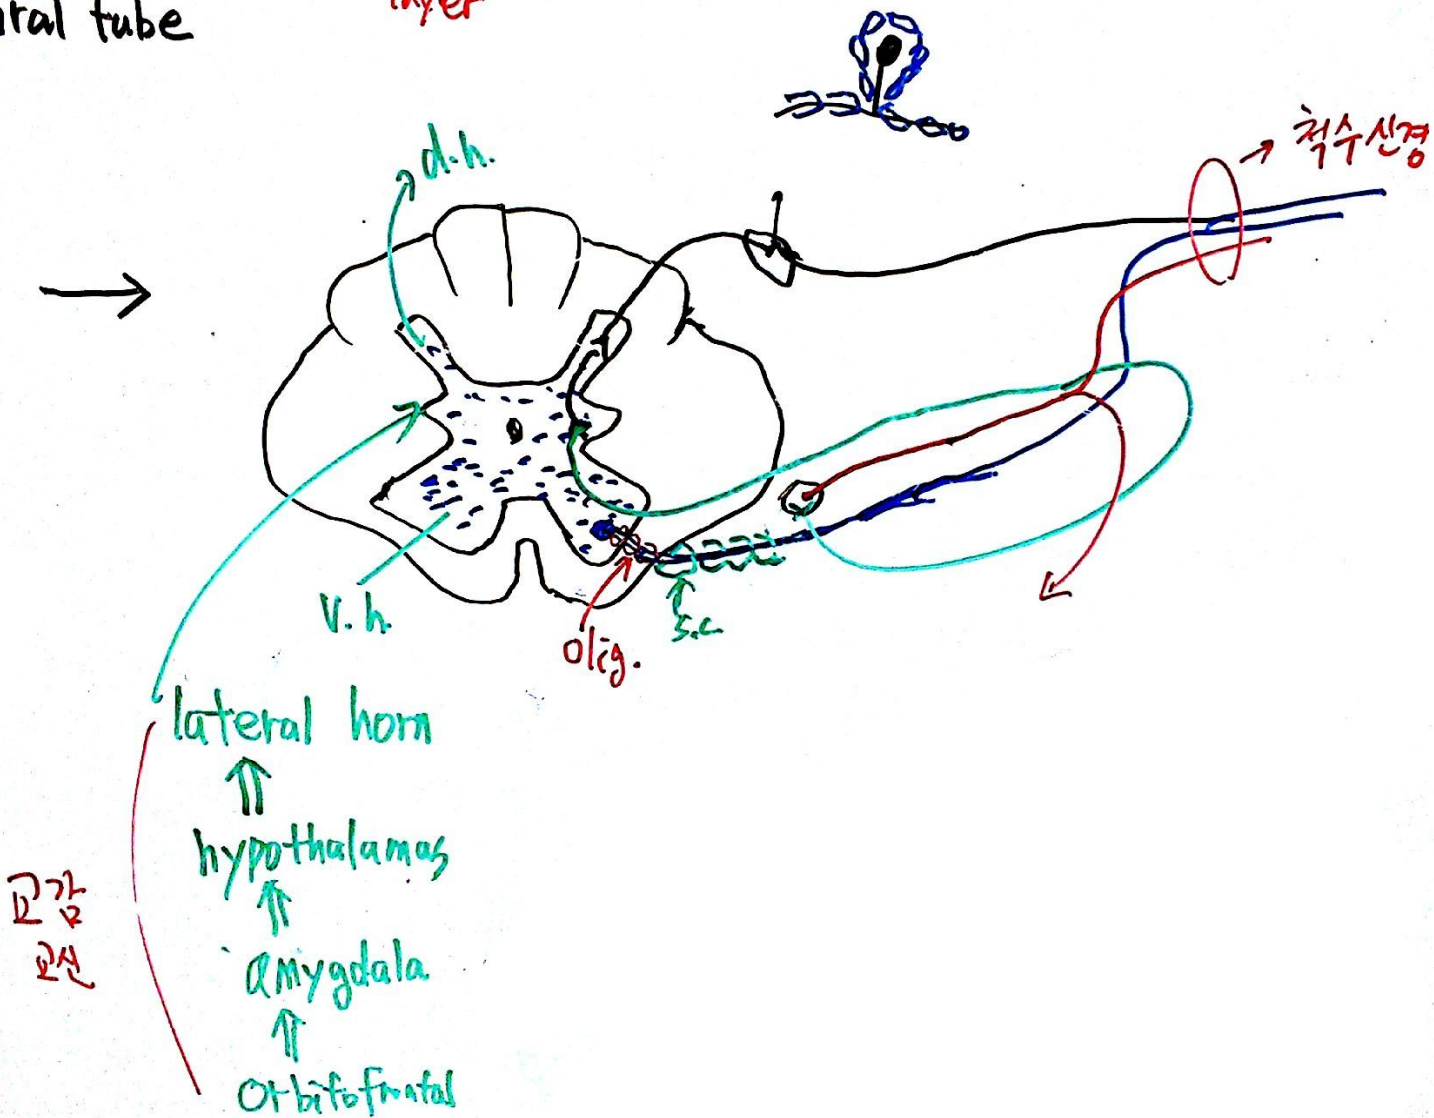 ral tube
layer
척수신경
d.h.
v.h.
olig.
s.c.
lateral horn
hypothalamas
교감
amygdala
orbitofrontal